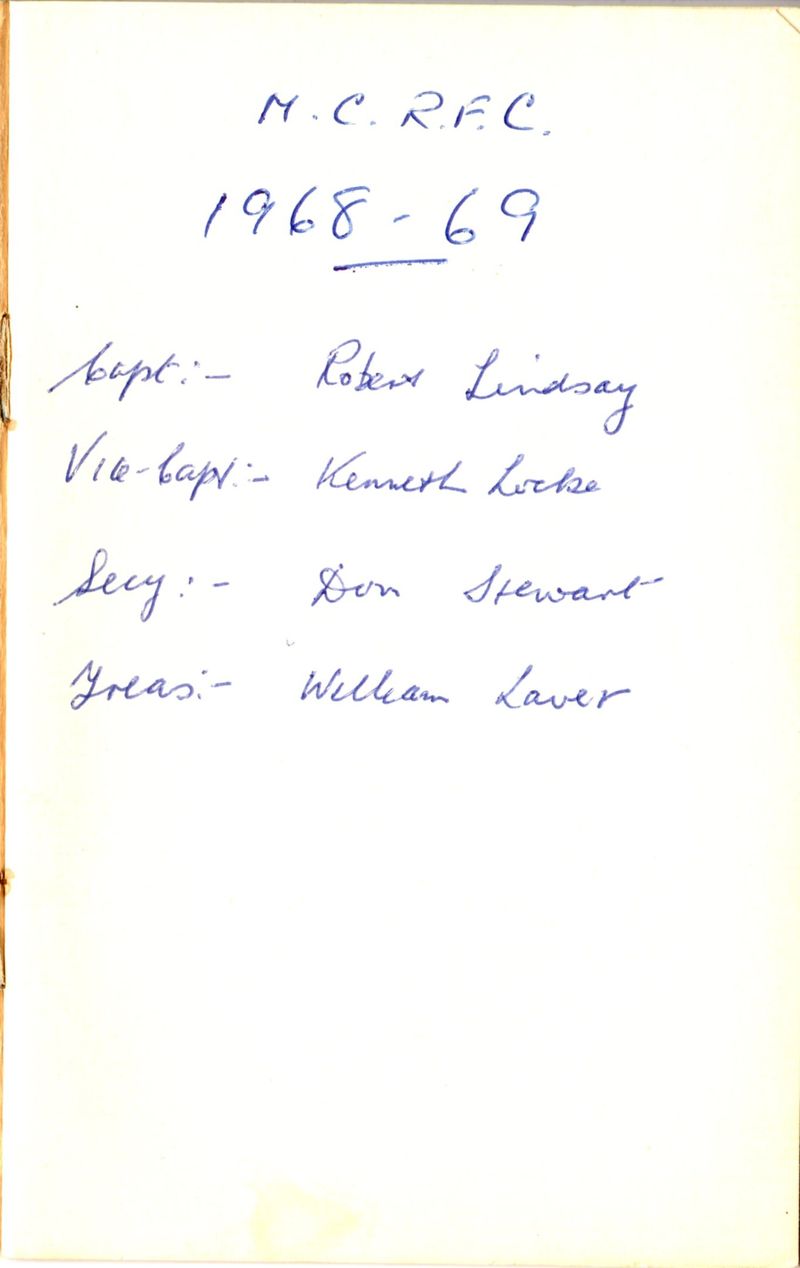 M.C.R.F.C.
1968-69
Capt:- Robert Lindsay
Vice-Capt:- Kenneth Locke
Secy:- Don Stewart
Treas:- William Laver